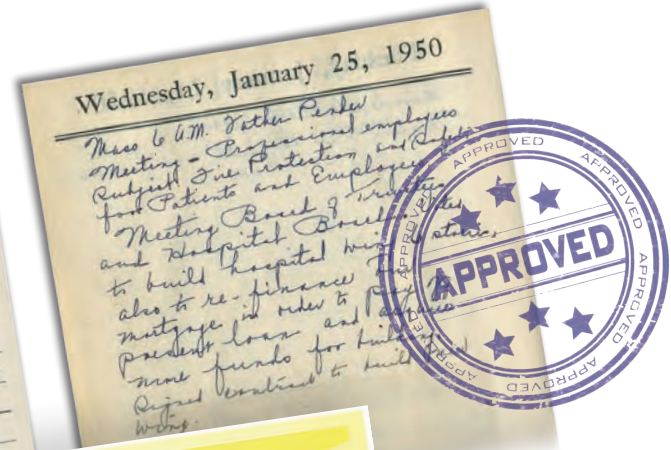 Wednesday, January 25, 1950
Mass 6 A.M. Father
Meeting - Professional employees
Subject Fire Protection and
for Patients and Employees
Meeting Board of Trustees
and Hospital Board
to build hospital wing stories,
also to re-finance
mortgage in order to pay
present loan and
more funds for building
Signed contract to build
wing.
APPROVED
APPROVED
APPROVED
APPROVED
APPROVED
APPROVED
APPROVED
APPROVED